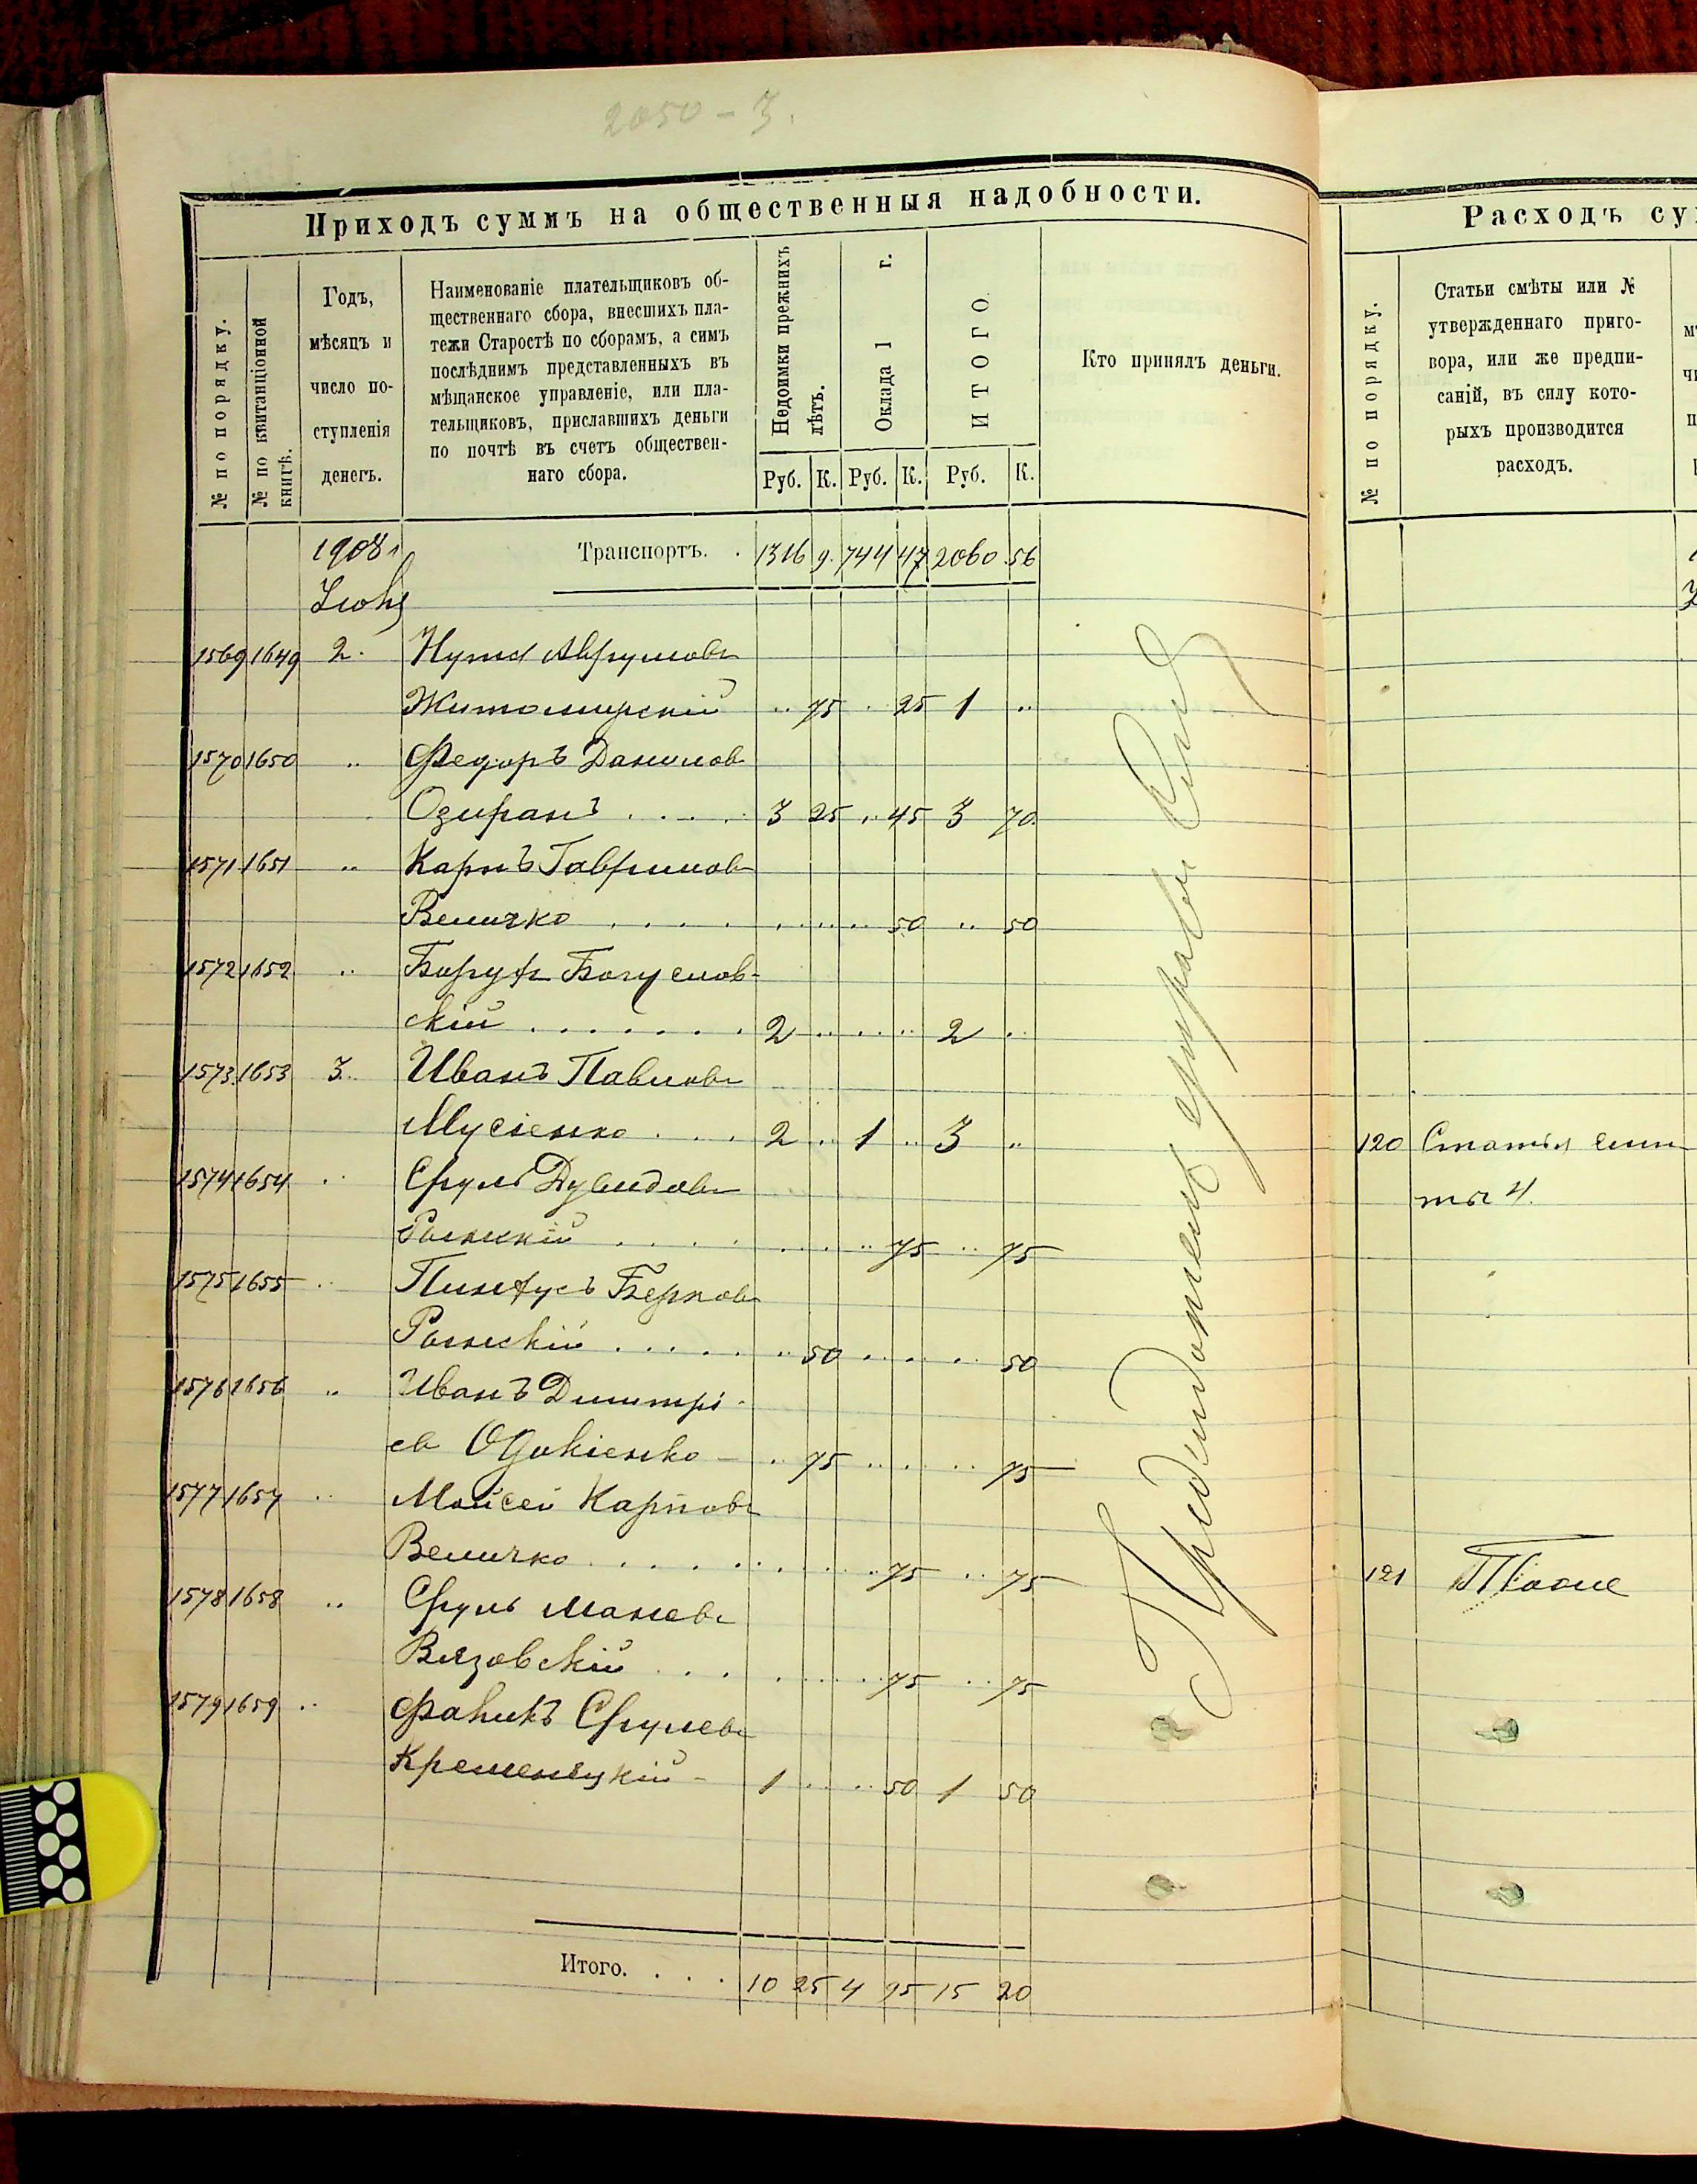 2050 - 3.
Приходъ суммъ на общественныя надобности.
№ по порядку.
№ по квитанціонной книгѣ.
Годъ,
мѣсяцъ и
число по-
ступленія
денегъ.
Наименованіе плательщиковъ об-
щественнаго сбора, внесшихъ пла-
тежи Старостѣ по сборамъ, а симъ
послѣднимъ представленныхъ въ
мѣщанское управленіе, или пла-
тельщиковъ, приславшихъ деньги
по почтѣ въ счетъ обществен-
наго сбора.
Недоимки прежнихъ лѣтъ.
Оклада 1 г.
ИТОГО.
Кто принялъ деньги.
Руб. К. Руб. К. Руб. К.
1908 г. Транспортъ. . 1316 9. 744 47 2060 56
Іюнь
1569 1649 2. Нута Аврумовъ
Житомирскій .. 75 . 25 1 ..
1570 1650 .. Федоръ Данилов
Озиранъ . . . . . 3 25 .. 45 3 70
1571 1651 .. Карпъ Гаврилов
Величко . . . . . . . . 50 .. 50
1572 1652 .. Борух Богуслов-
скій . . . . . . . 2 .. .. .. 2 ..
1573 1653 3. Иванъ Павловъ
Мусіенко . . . 2 .. 1 .. 3 ..
1574 1654 .. Сруль Дувидовъ
Рольскій . . . . . . . .. 75 .. 75
1575 1655 .. Пинхусъ Берков
Рольскій . . . . . .. 50 . . . . .. 50
1576 1656 .. Иванъ Дмитрі-
ев Одокіенко - .. 75 .. . . .. 75
1577 1657 .. Мойсей Карповъ
Величко . . . . . . . . . 75 .. 75
1578 1658 .. Сруль Маневъ
Вязовскій . . . . . . . 75 .. 75
1579 1659 .. Фавикъ Срулевъ
Кременецкій - 1 . . .. 50 1 50
Итого. . . . 10 25 4 95 15 20
Расходъ су
№ по порядку.
Статьи смѣты или №
утвержденнаго приго-
вора, или же предпи-
саній, въ силу кото-
рыхъ производится
расходъ.
120 Статья смѣ-
ты 4.
121 Тоже